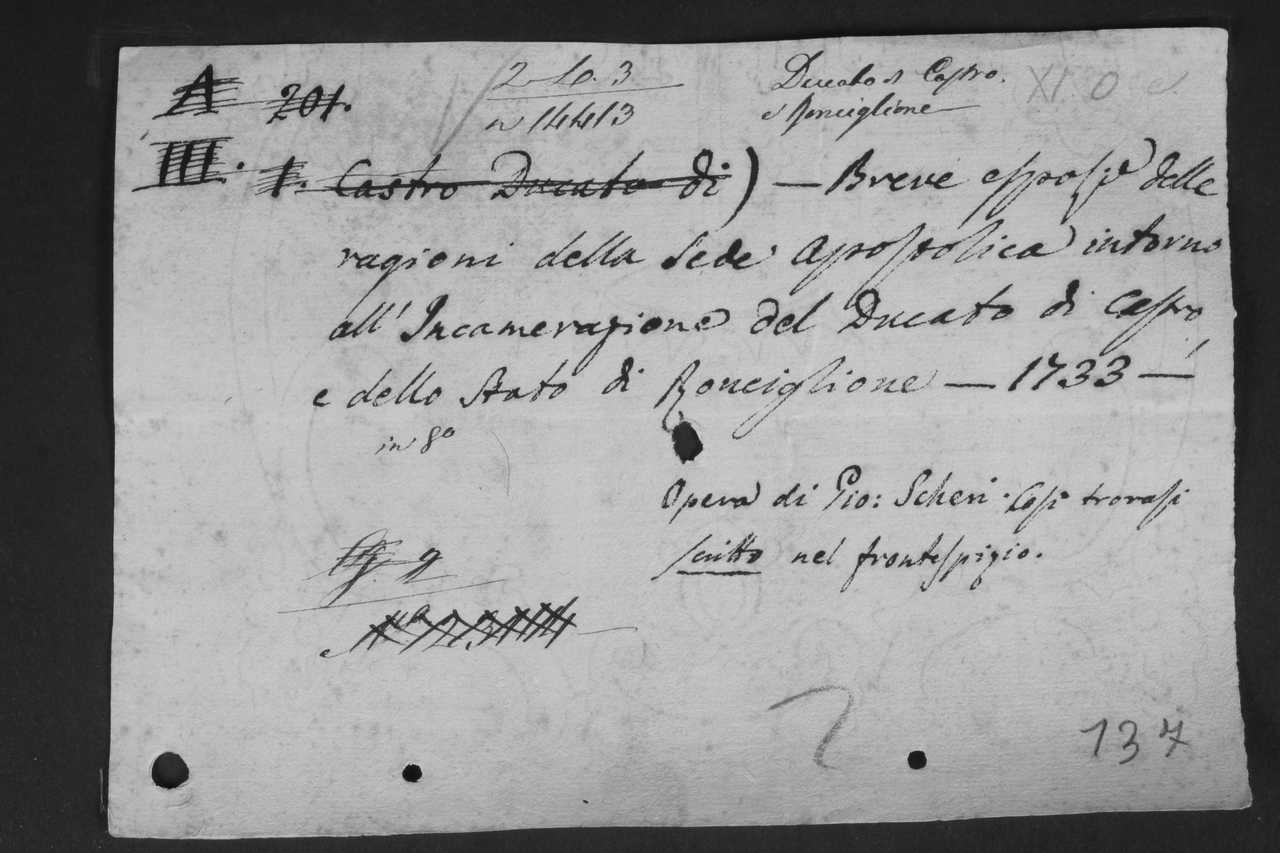 A 201. 2-10.3 Ducato di Castro.
n 14413 e Ronciglione
III. 1. Castro Ducato di) — Breve esposiz.e delle
ragioni della Sede Apostolica intorno
all'Incamerazione del Ducato di Castro
e dello Stato di Ronciglione — 1733 —
in 8o
Opera di Gio: Scheri. Così trovasi
scritto nel frontespizio.
137